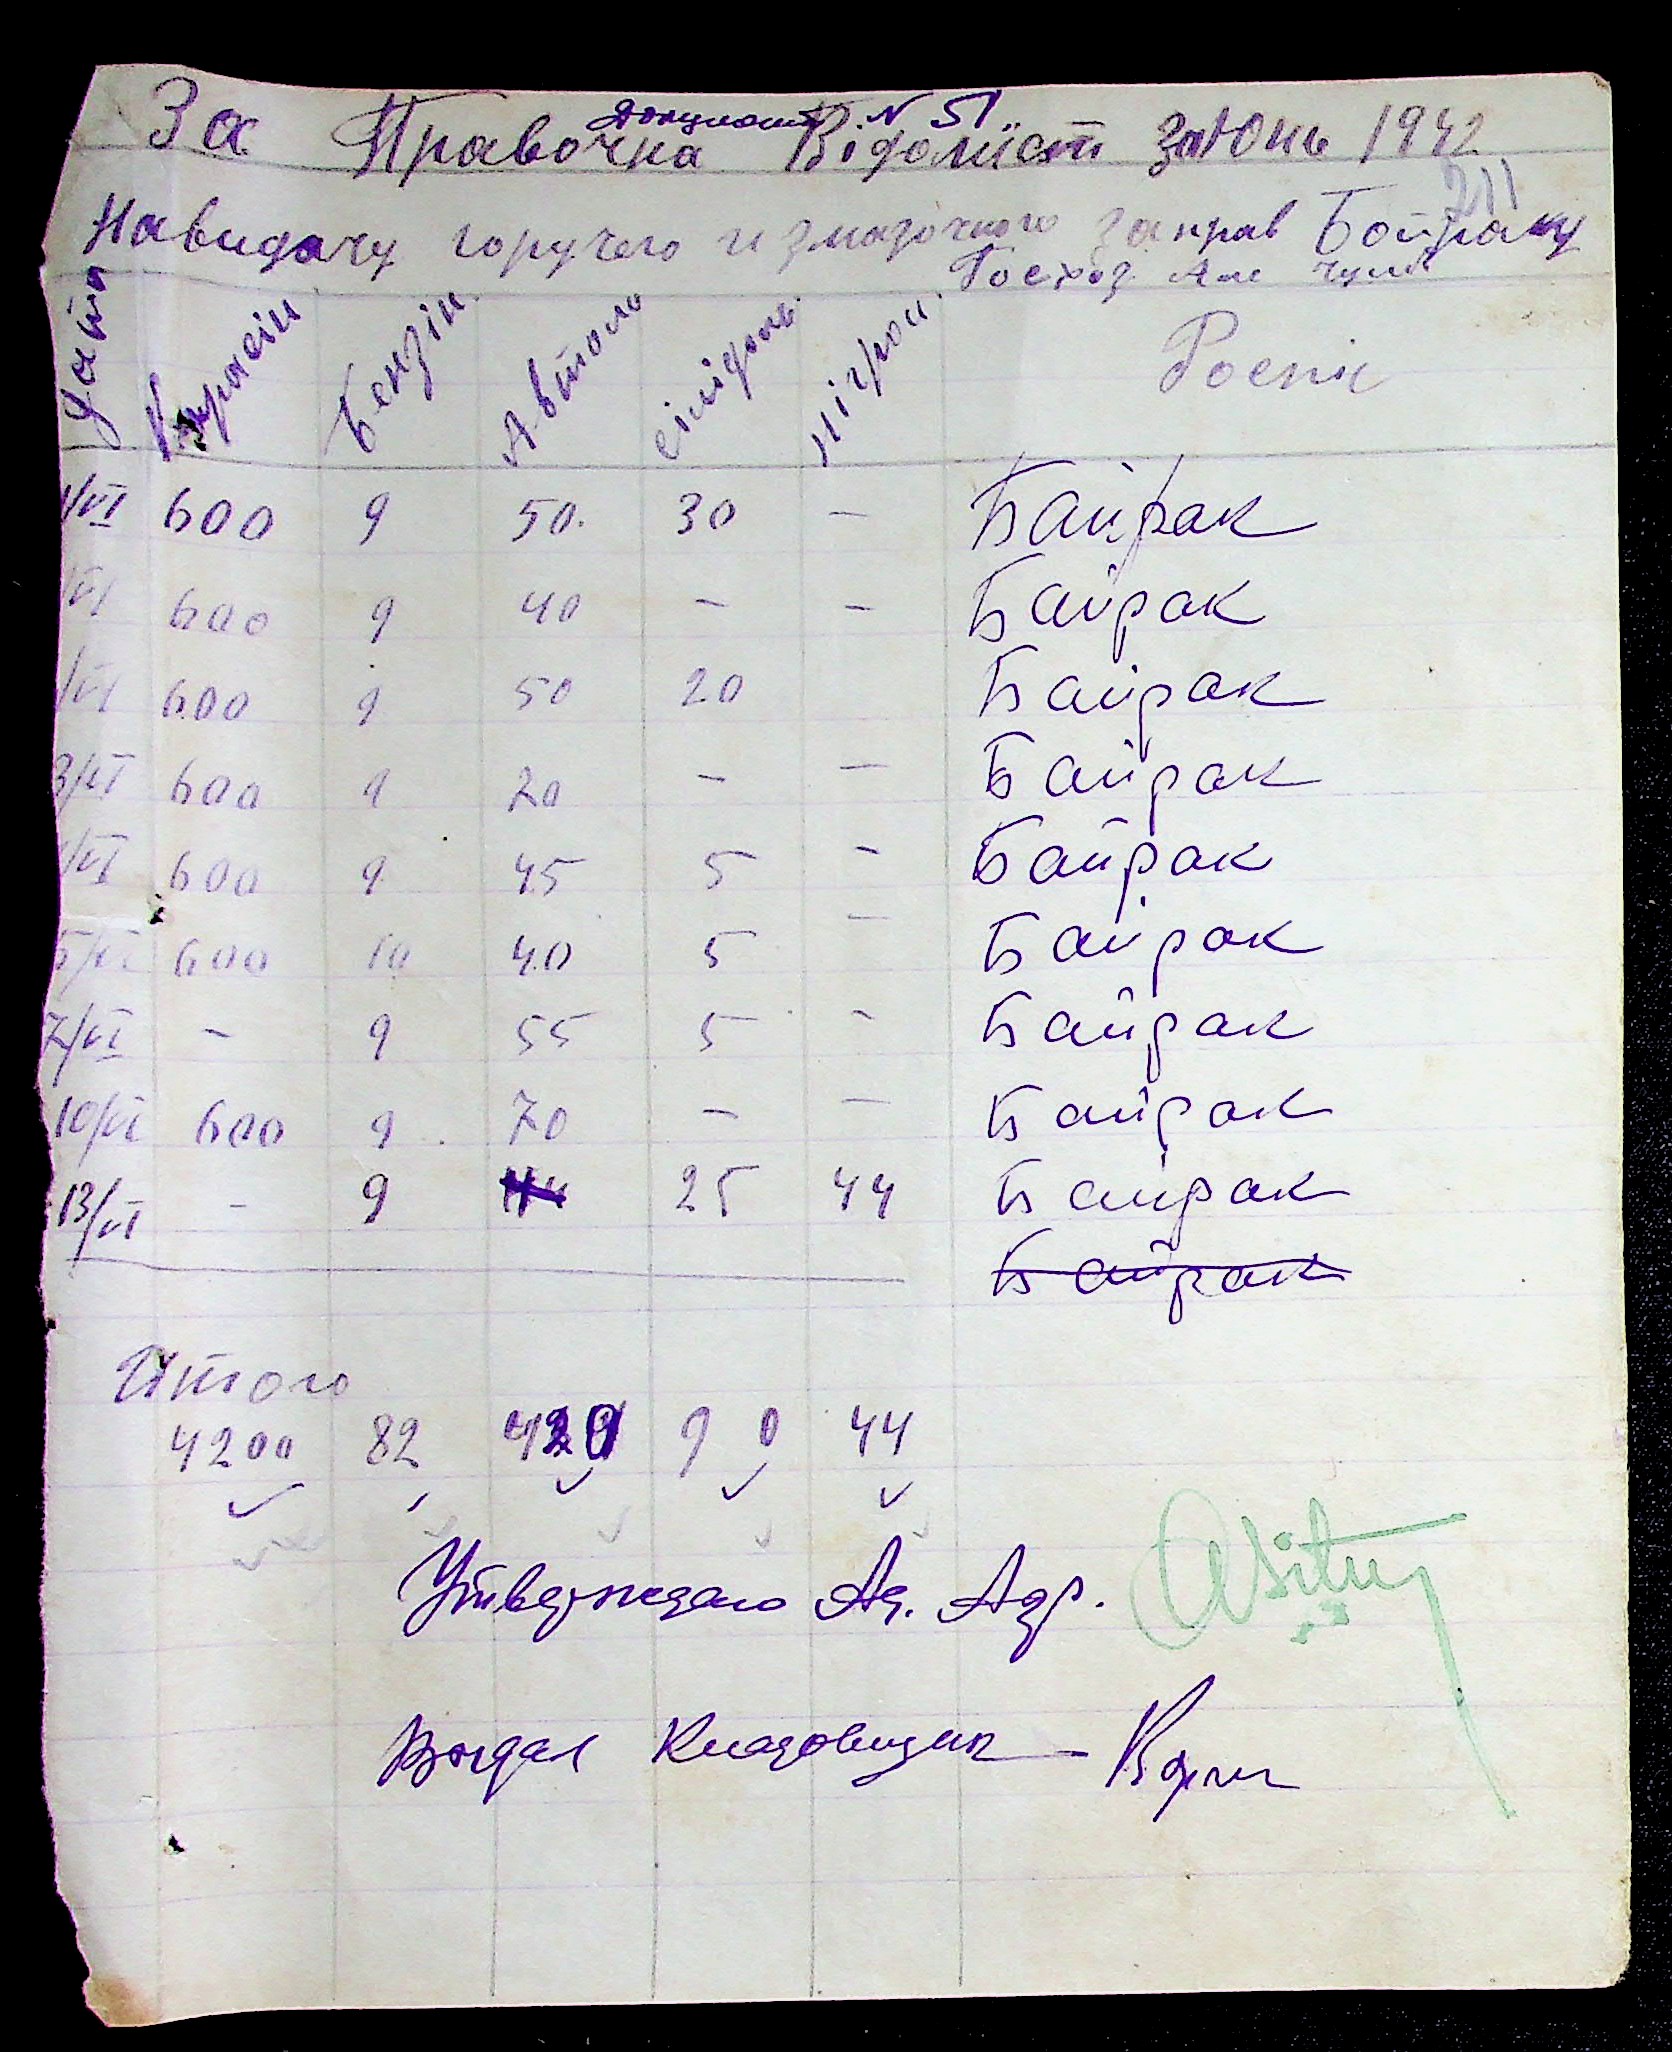 Документ N 51
За Правочна Відомист за Юнь 1942
211
На видачу горучего и змазочного заправ Байраку
Госход.
Дата Кирасін Бензін Автола солідола нігрол Роспис
1/VI 600 9 50. 30 — Байрак
/VI 600 9 40 — — Байрак
/VI 600 9 50 20 Байрак
3/VI 600 9 20 — — Байрак
/VI 600 9 45 5 — Байрак
5/VI 600 10 40 5 — Байрак
7/VI — 9 55 5 — Байрак
10/VI 600 9 70 — — Байрак
13/VI — 9 25 44 Байрак
Байрак
Итого
4200 82 420 90 44
Утверждаю Аг. Адр.
Выдал Кладовщик —